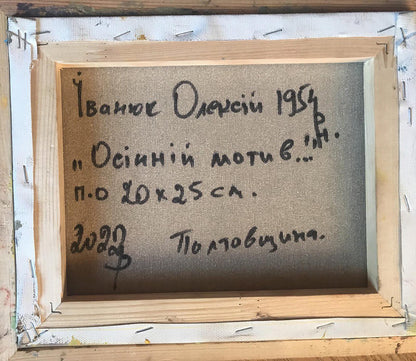 Іванюк Олексій 1954 р.н.
„Осінній мотив..."
п.о 20x25 см.
2020р Полтовщина.